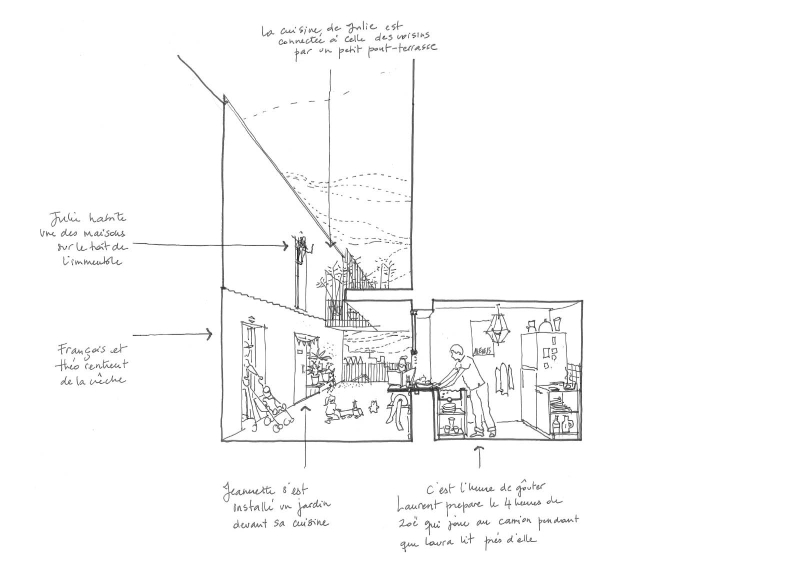 La cuisine de Julie est
connectée à celle des voisins
par un petit pont-terrasse
Julie habite
une des maisons
sur le toit de
l'immeuble
François et
théo rentrent
de la crêche
Jeannette s'est
installé un jardin
devant sa cuisine
C'est l'heure de goûter
Laurent prepare le 4 heures de
Zoë qui joue au camion pendant
que Laura lit près d'elle